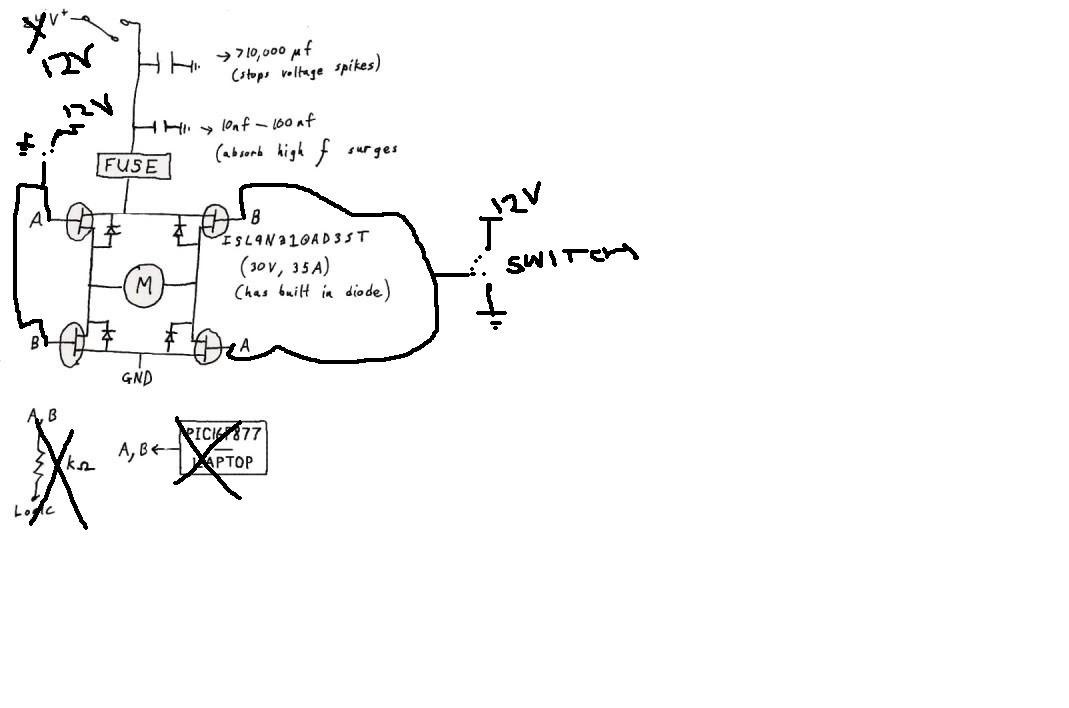 V+
12V
→ >10,000 µf
(stops voltage spikes)
12V
→ 10nf – 100nf
(absorb high f surges
FUSE
A
B
ISL9N310AD3ST
(30V, 35A)
(has built in diode)
M
12V
SWITCH
B
A
GND
A, B
kΩ
Logic
A, B ←
PIC16F877
LAPTOP